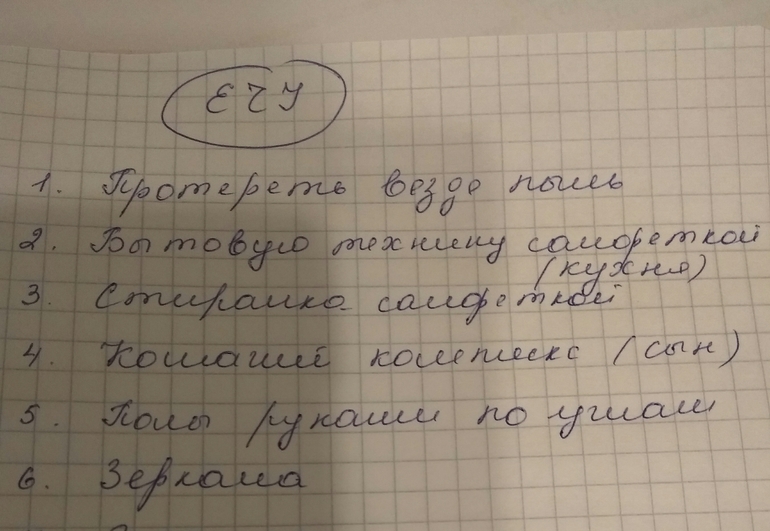 ЕЧУ
1. Протереть везде пыль
2. Бытовую технику салфеткой
(кухня)
3. Стиралка салфеткой
4. Кошачий комплекс (сын)
5. Полы руками по углам
6. Зеркала